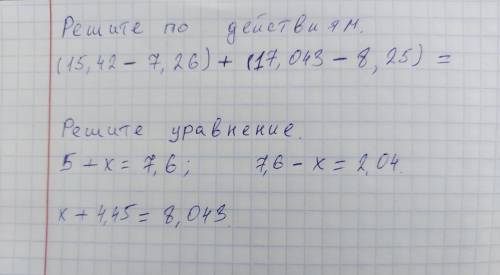 Решите по действиям.
(15,42 - 7,26) + (17,043 - 8,25) =
Решите уравнение.
5 + x = 7,6; 7,6 - x = 2,04.
x + 4,45 = 8,043.